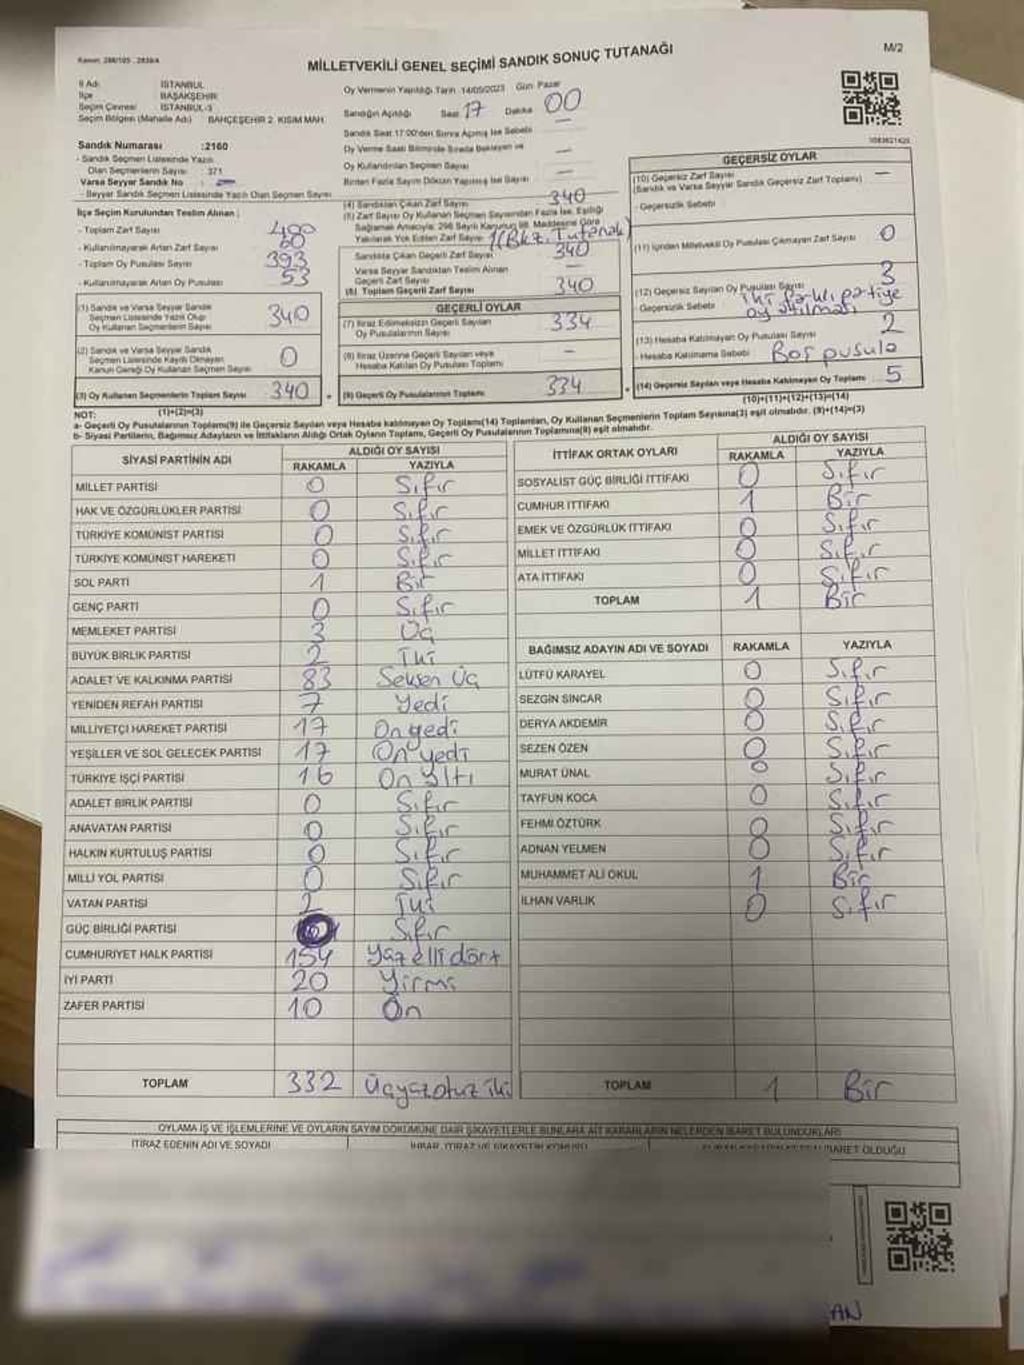 Kanun: 298/105 , 2839/4
M/2
MİLLETVEKİLİ GENEL SEÇİMİ SANDIK SONUÇ TUTANAĞI
İl Adı: İSTANBUL
İlçe BAŞAKŞEHİR
Seçim Çevresi İSTANBUL-3
Seçim Bölgesi (Mahalle Adı) BAHÇEŞEHİR 2. KISIM MAH.
Sandık Numarası :2160
- Sandık Seçmen Listesinde Yazılı
Olan Seçmenlerin Sayısı 371
Varsa Seyyar Sandık No : —
- Seyyar Sandık Seçmen Listesinde Yazılı Olan Seçmen Sayısı
İlçe Seçim Kurulundan Teslim Alınan :
- Toplam Zarf Sayısı 400
- Kullanılmayarak Artan Zarf Sayısı 60
- Toplam Oy Pusulası Sayısı 393
- Kullanılmayarak Artan Oy Pusulası 53
(1) Sandık ve Varsa Seyyar Sandık
Seçmen Listesinde Yazılı Olup
Oy Kullanan Seçmenlerin Sayısı 340
(2) Sandık ve Varsa Seyyar Sandık
Seçmen Listesinde Kaydı Olmayan
Kanun Gereği Oy Kullanan Seçmen Sayısı 0
(3) Oy Kullanan Seçmenlerin Toplam Sayısı 340
(1)+(2)=(3)
Oy Vermenin Yapıldığı Tarih: 14/05/2023 Gün: Pazar
Sandığın Açıldığı Saat 17 Dakika 00
Sandık Saat 17:00'den Sonra Açılmış İse Sebebi —
Oy Verme Saati Bitiminde Sırada Bekleyen ve
Oy Kullandırılan Seçmen Sayısı —
Birden Fazla Sayım Döküm Yapılmış İse Sayısı —
(4) Sandıktan Çıkan Zarf Sayısı 340
(5) Zarf Sayısı Oy Kullanan Seçmen Sayısından Fazla İse, Eşitliği
Sağlamak Amacıyla; 298 Sayılı Kanunun 98. Maddesine Göre
Yakılarak Yok Edilen Zarf Sayısı 1 (Bkz. Tutanak)
Sandıkta Çıkan Geçerli Zarf Sayısı 340
Varsa Seyyar Sandıktan Teslim Alınan
Geçerli Zarf Sayısı —
(6) Toplam Geçerli Zarf Sayısı 340
GEÇERLİ OYLAR
(7) İtiraz Edilmeksizin Geçerli Sayılan
Oy Pusulalarının Sayısı 334
(8) İtiraz Üzerine Geçerli Sayılan veya
Hesaba Katılan Oy Pusulası Toplamı —
(9) Geçerli Oy Pusulalarının Toplamı 334
GEÇERSİZ OYLAR
(10) Geçersiz Zarf Sayısı —
(Sandık ve Varsa Seyyar Sandık Geçersiz Zarf Toplamı)
- Geçersizlik Sebebi
(11) İçinden Milletvekili Oy Pusulası Çıkmayan Zarf Sayısı 0
(12) Geçersiz Sayılan Oy Pusulası Sayısı 3
Geçersizlik Sebebi iki farklı partiye
oy atılması
(13) Hesaba Katılmayan Oy Pusulası Sayısı 2
- Hesaba Katılmama Sebebi Boş pusula
(14) Geçersiz Sayılan veya Hesaba Katılmayan Oy Toplamı 5
(10)+(11)+(12)+(13)=(14)
NOT:
a- Geçerli Oy Pusulalarının Toplamı(9) ile Geçersiz Sayılan veya Hesaba katılmayan Oy Toplamı(14) Toplamları, Oy Kullanan Seçmenlerin Toplam Sayısına(3) eşit olmalıdır. (9)+(14)=(3)
b- Siyasi Partilerin, Bağımsız Adayların ve İttifakların Aldığı Ortak Oyların Toplamı, Geçerli Oy Pusulalarının Toplamına(9) eşit olmalıdır.
SİYASİ PARTİNİN ADI ALDIĞI OY SAYISI
RAKAMLA YAZIYLA
MİLLET PARTİSİ 0 Sıfır
HAK VE ÖZGÜRLÜKLER PARTİSİ 0 Sıfır
TÜRKİYE KOMÜNİST PARTİSİ 0 Sıfır
TÜRKİYE KOMÜNİST HAREKETİ 0 Sıfır
SOL PARTİ 1 Bir
GENÇ PARTİ 0 Sıfır
MEMLEKET PARTİSİ 3 Üç
BÜYÜK BİRLİK PARTİSİ 2 İki
ADALET VE KALKINMA PARTİSİ 83 Seksen Üç
YENİDEN REFAH PARTİSİ 7 Yedi
MİLLİYETÇİ HAREKET PARTİSİ 17 On yedi
YEŞİLLER VE SOL GELECEK PARTİSİ 17 On yedi
TÜRKİYE İŞÇİ PARTİSİ 16 On Altı
ADALET BİRLİK PARTİSİ 0 Sıfır
ANAVATAN PARTİSİ 0 Sıfır
HALKIN KURTULUŞ PARTİSİ 0 Sıfır
MİLLİ YOL PARTİSİ 0 Sıfır
VATAN PARTİSİ 2 İki
GÜÇ BİRLİĞİ PARTİSİ 0 Sıfır
CUMHURİYET HALK PARTİSİ 154 Yüz elli dört
İYİ PARTİ 20 Yirmi
ZAFER PARTİSİ 10 On
TOPLAM 332 Üçyüzotuz iki
İTTİFAK ORTAK OYLARI ALDIĞI OY SAYISI
RAKAMLA YAZIYLA
SOSYALİST GÜÇ BİRLİĞİ İTTİFAKI 0 Sıfır
CUMHUR İTTİFAKI 1 Bir
EMEK VE ÖZGÜRLÜK İTTİFAKI 0 Sıfır
MİLLET İTTİFAKI 0 Sıfır
ATA İTTİFAKI 0 Sıfır
TOPLAM 1 Bir
BAĞIMSIZ ADAYIN ADI VE SOYADI RAKAMLA YAZIYLA
LÜTFÜ KARAYEL 0 Sıfır
SEZGİN SİNCAR 0 Sıfır
DERYA AKDEMİR 0 Sıfır
SEZEN ÖZEN 0 Sıfır
MURAT ÜNAL 0 Sıfır
TAYFUN KOCA 0 Sıfır
FEHMİ ÖZTÜRK 0 Sıfır
ADNAN YELMEN 0 Sıfır
MUHAMMET ALİ OKUL 1 Bir
İLHAN VARLIK 0 Sıfır
TOPLAM 1 Bir
OYLAMA İŞ VE İŞLEMLERİNE VE OYLARIN SAYIM DÖKÜMÜNE DAİR ŞİKAYETLERLE BUNLARA AİT KARARLARIN NELERDEN İBARET BULUNDUKLARI
İTİRAZ EDENİN ADI VE SOYADI
OLDUĞU
AN